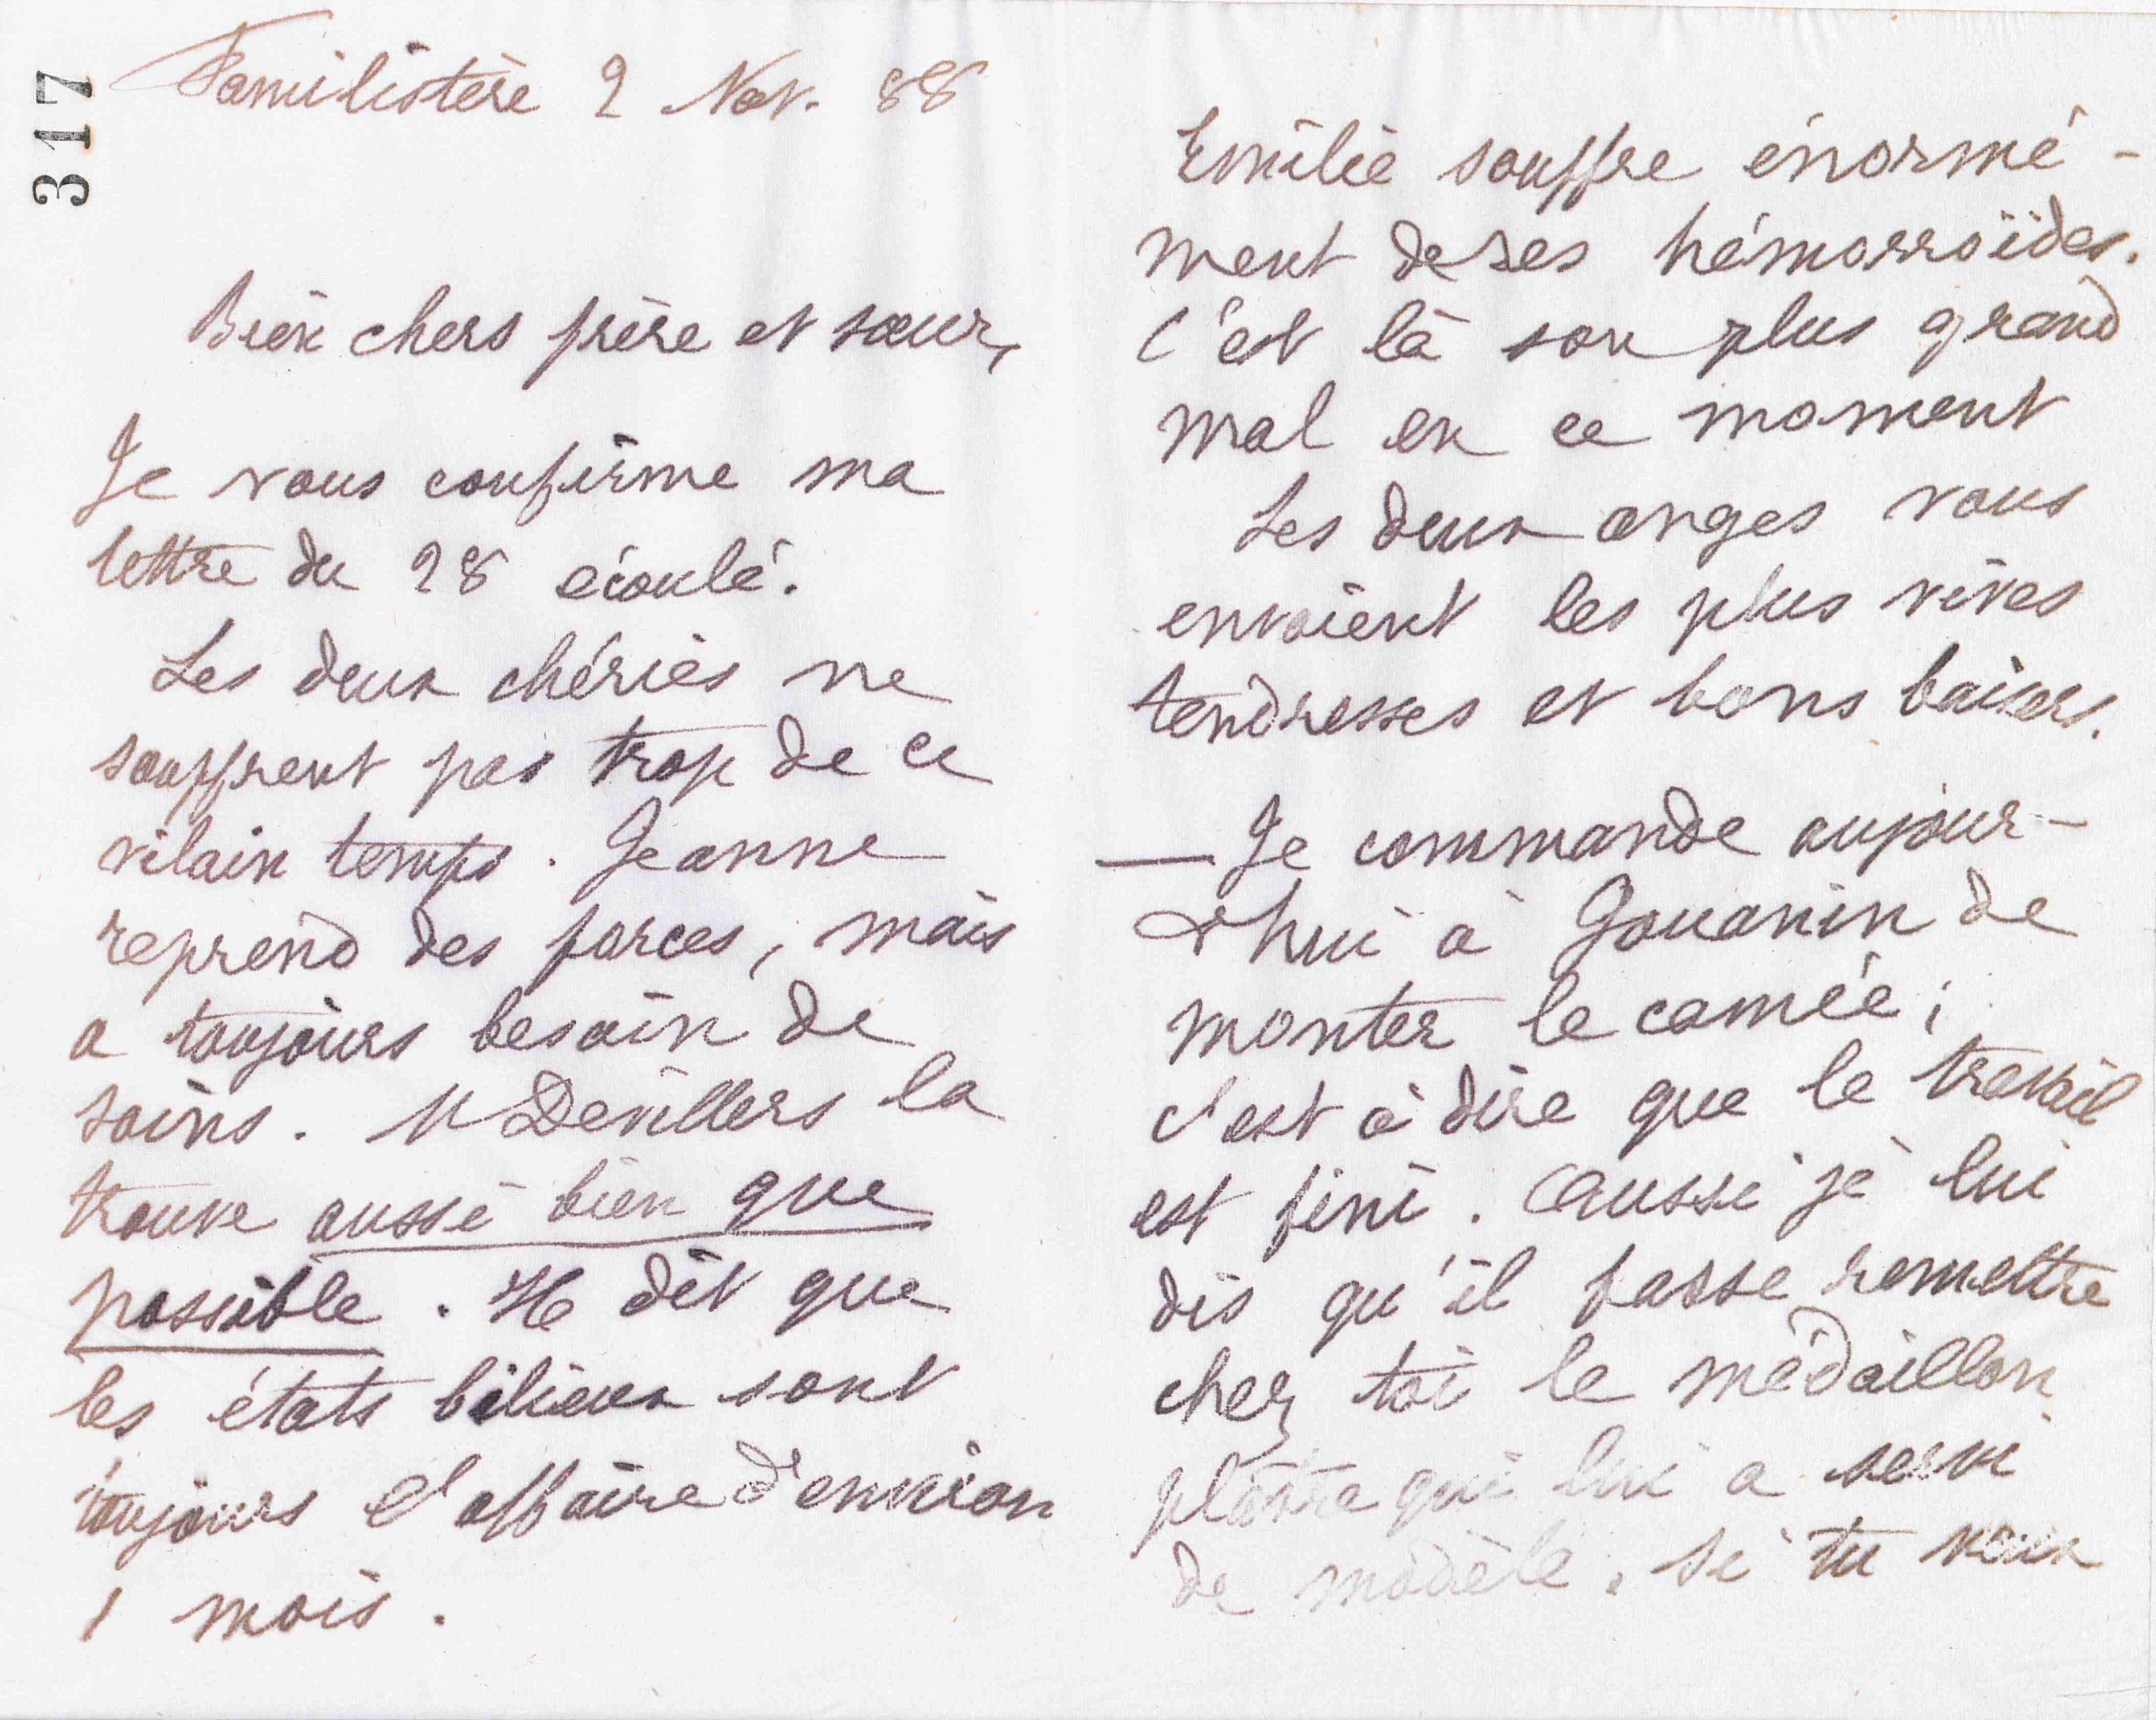 317
Familistère 2 Nov. 88
Bien chers frère et sœur,
Je vous confirme ma
lettre du 28 écoulé.
Les deux chéries ne
souffrent pas trop de ce
vilain temps. Jeanne
reprend des forces, mais
a toujours besoin de
soins. Mr Devillers la
trouve aussi bien que
possible. Il dit que
les états bilieux sont
toujours l'affaire d'environ
1 mois.
Emilie souffre énormé-
ment de ses hémorroïdes.
C'est là son plus grand
mal en ce moment
Les deux anges vous
envoient les plus vives
tendresses et bons baisers.
— Je commande aujour-
d'hui à Gouanin de
monter le camée;
c'est à dire que le travail
est fini. Aussi je lui
dis qu'il fasse remettre
chez toi le médaillon
plâtre qui lui a servi
de modèle. Si tu veux